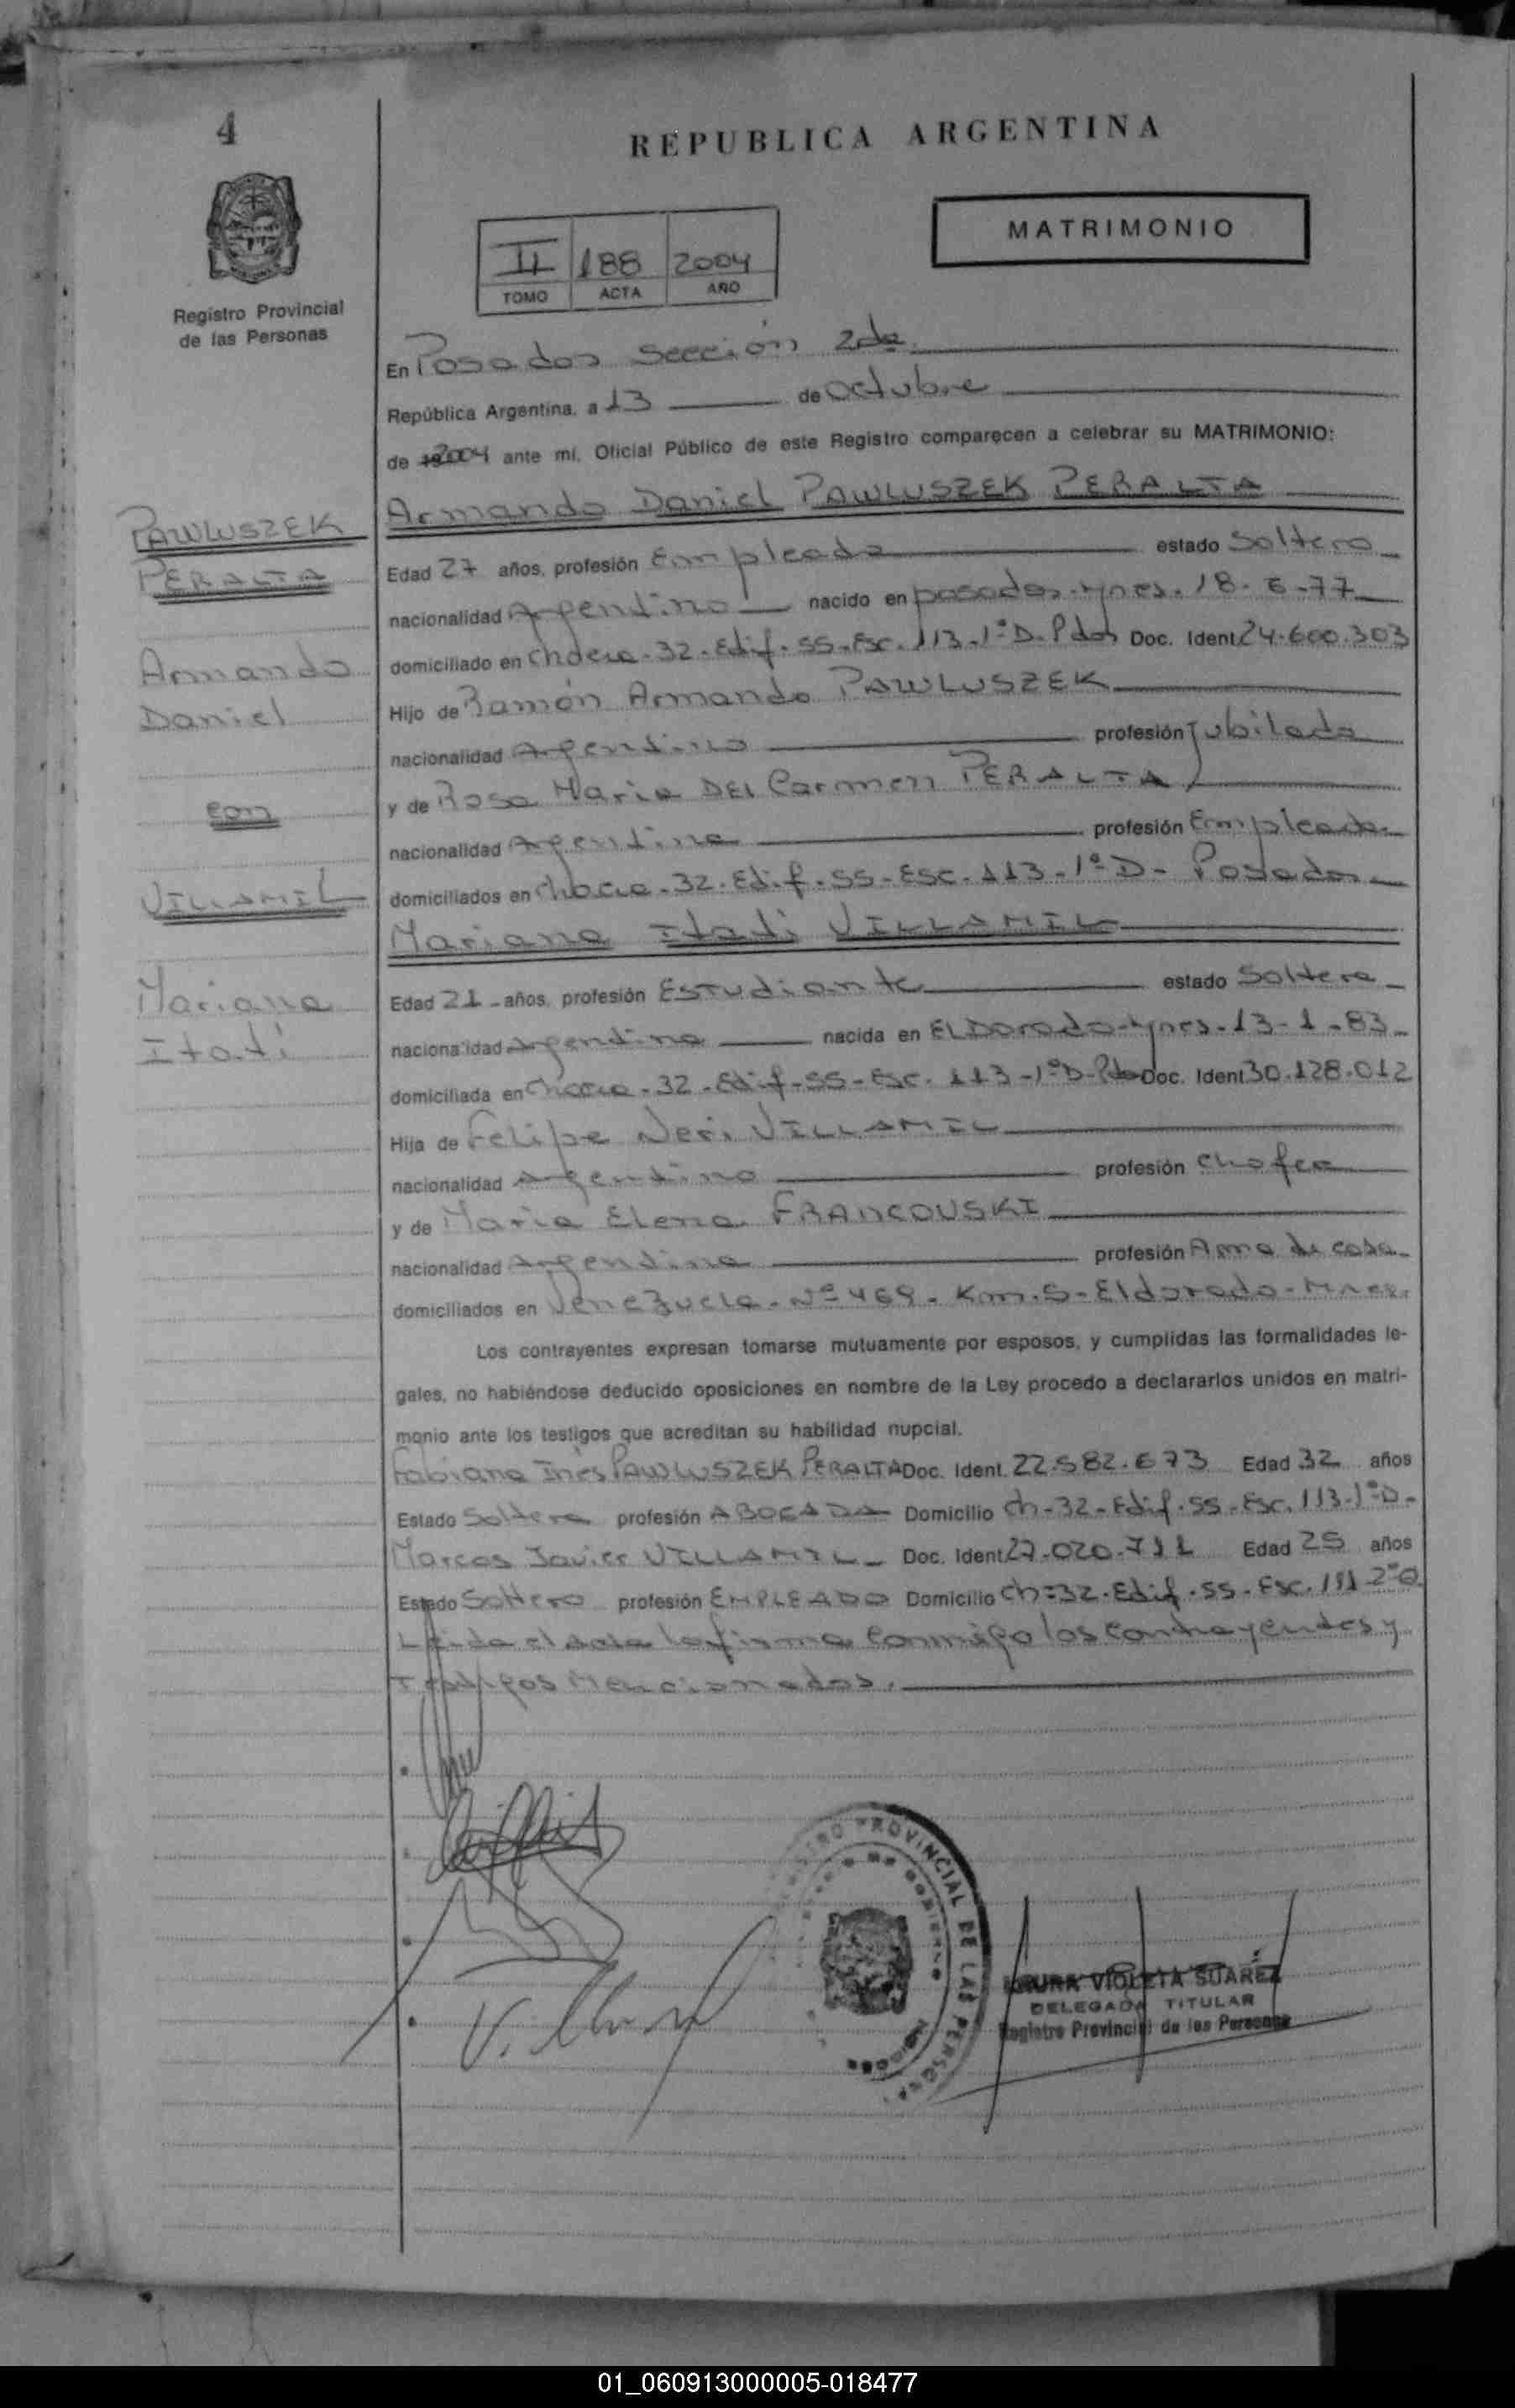 4
REPUBLICA ARGENTINA
MATRIMONIO
II 188 2004
TOMO ACTA AÑO
Registro Provincial
de las Personas
En Posadas Sección 2da
República Argentina, a 13 de octubre
de 2004 ante mí, Oficial Público de este Registro comparecen a celebrar su MATRIMONIO:
Armando Daniel PAWLUSZEK PERALTA
PAWLUSZEK
PERALTA
Armando
Daniel
con
VILLAMIL
Mariana
Itatí
Edad 27 años, profesión Empleado estado Soltero
nacionalidad Argentino nacido en posadas-mnes. 18-6-77
domiciliado en Chacra-32-Edif-SS-Esc. 113-1º D-Pdas Doc. Ident. 24.600.303
Hijo de Ramón Armando PAWLUSZEK
nacionalidad Argentino profesión Jubilado
y de Rosa Maria DEL Carmen PERALTA
nacionalidad Argentina profesión Empleada
domiciliados en Chacra-32-Edif-SS-Esc-113-1º D- Posadas
Mariana Itati VILLAMIL
Edad 21 años, profesión Estudiante estado Soltera
nacionalidad Argentina nacida en ELDorado-mnes-13-1-83
domiciliada en Chacra-32-Edif-SS-Esc. 113-1º D-Pdas Doc. Ident 30.128.012
Hija de Felipe Neri VILLAMIL
nacionalidad Argentino profesión Chofer
y de Maria Elena FRANCOUSKI
nacionalidad Argentina profesión Ama de casa
domiciliados en Venezuela-Nº 469-Km.5-Eldorado-Mnes.
Los contrayentes expresan tomarse mutuamente por esposos, y cumplidas las formalidades le-
gales, no habiéndose deducido oposiciones en nombre de la Ley procedo a declararlos unidos en matri-
monio ante los testigos que acreditan su habilidad nupcial.
Fabiana Inés PAWLUSZEK PERALTA Doc. Ident. 22.582.673 Edad 32 años
Estado Soltera profesión ABOGADA Domicilio Ch-32-Edif-SS-Esc. 113-1º D-
Marcos Javier VILLAMIL Doc. Ident 27.020.711 Edad 25 años
Estado Soltero profesión EMPLEADO Domicilio Ch=32-Edif-SS-Esc. 111 2º
Leída el acta la firma conmigo los contrayentes y
Testigos Mencionados.
REGISTRO PROVINCIAL DE LAS PERSONAS
LAURA VIOLETA SUAREZ
DELEGADA TITULAR
Registro Provincial de las Personas
01_060913000005-018477